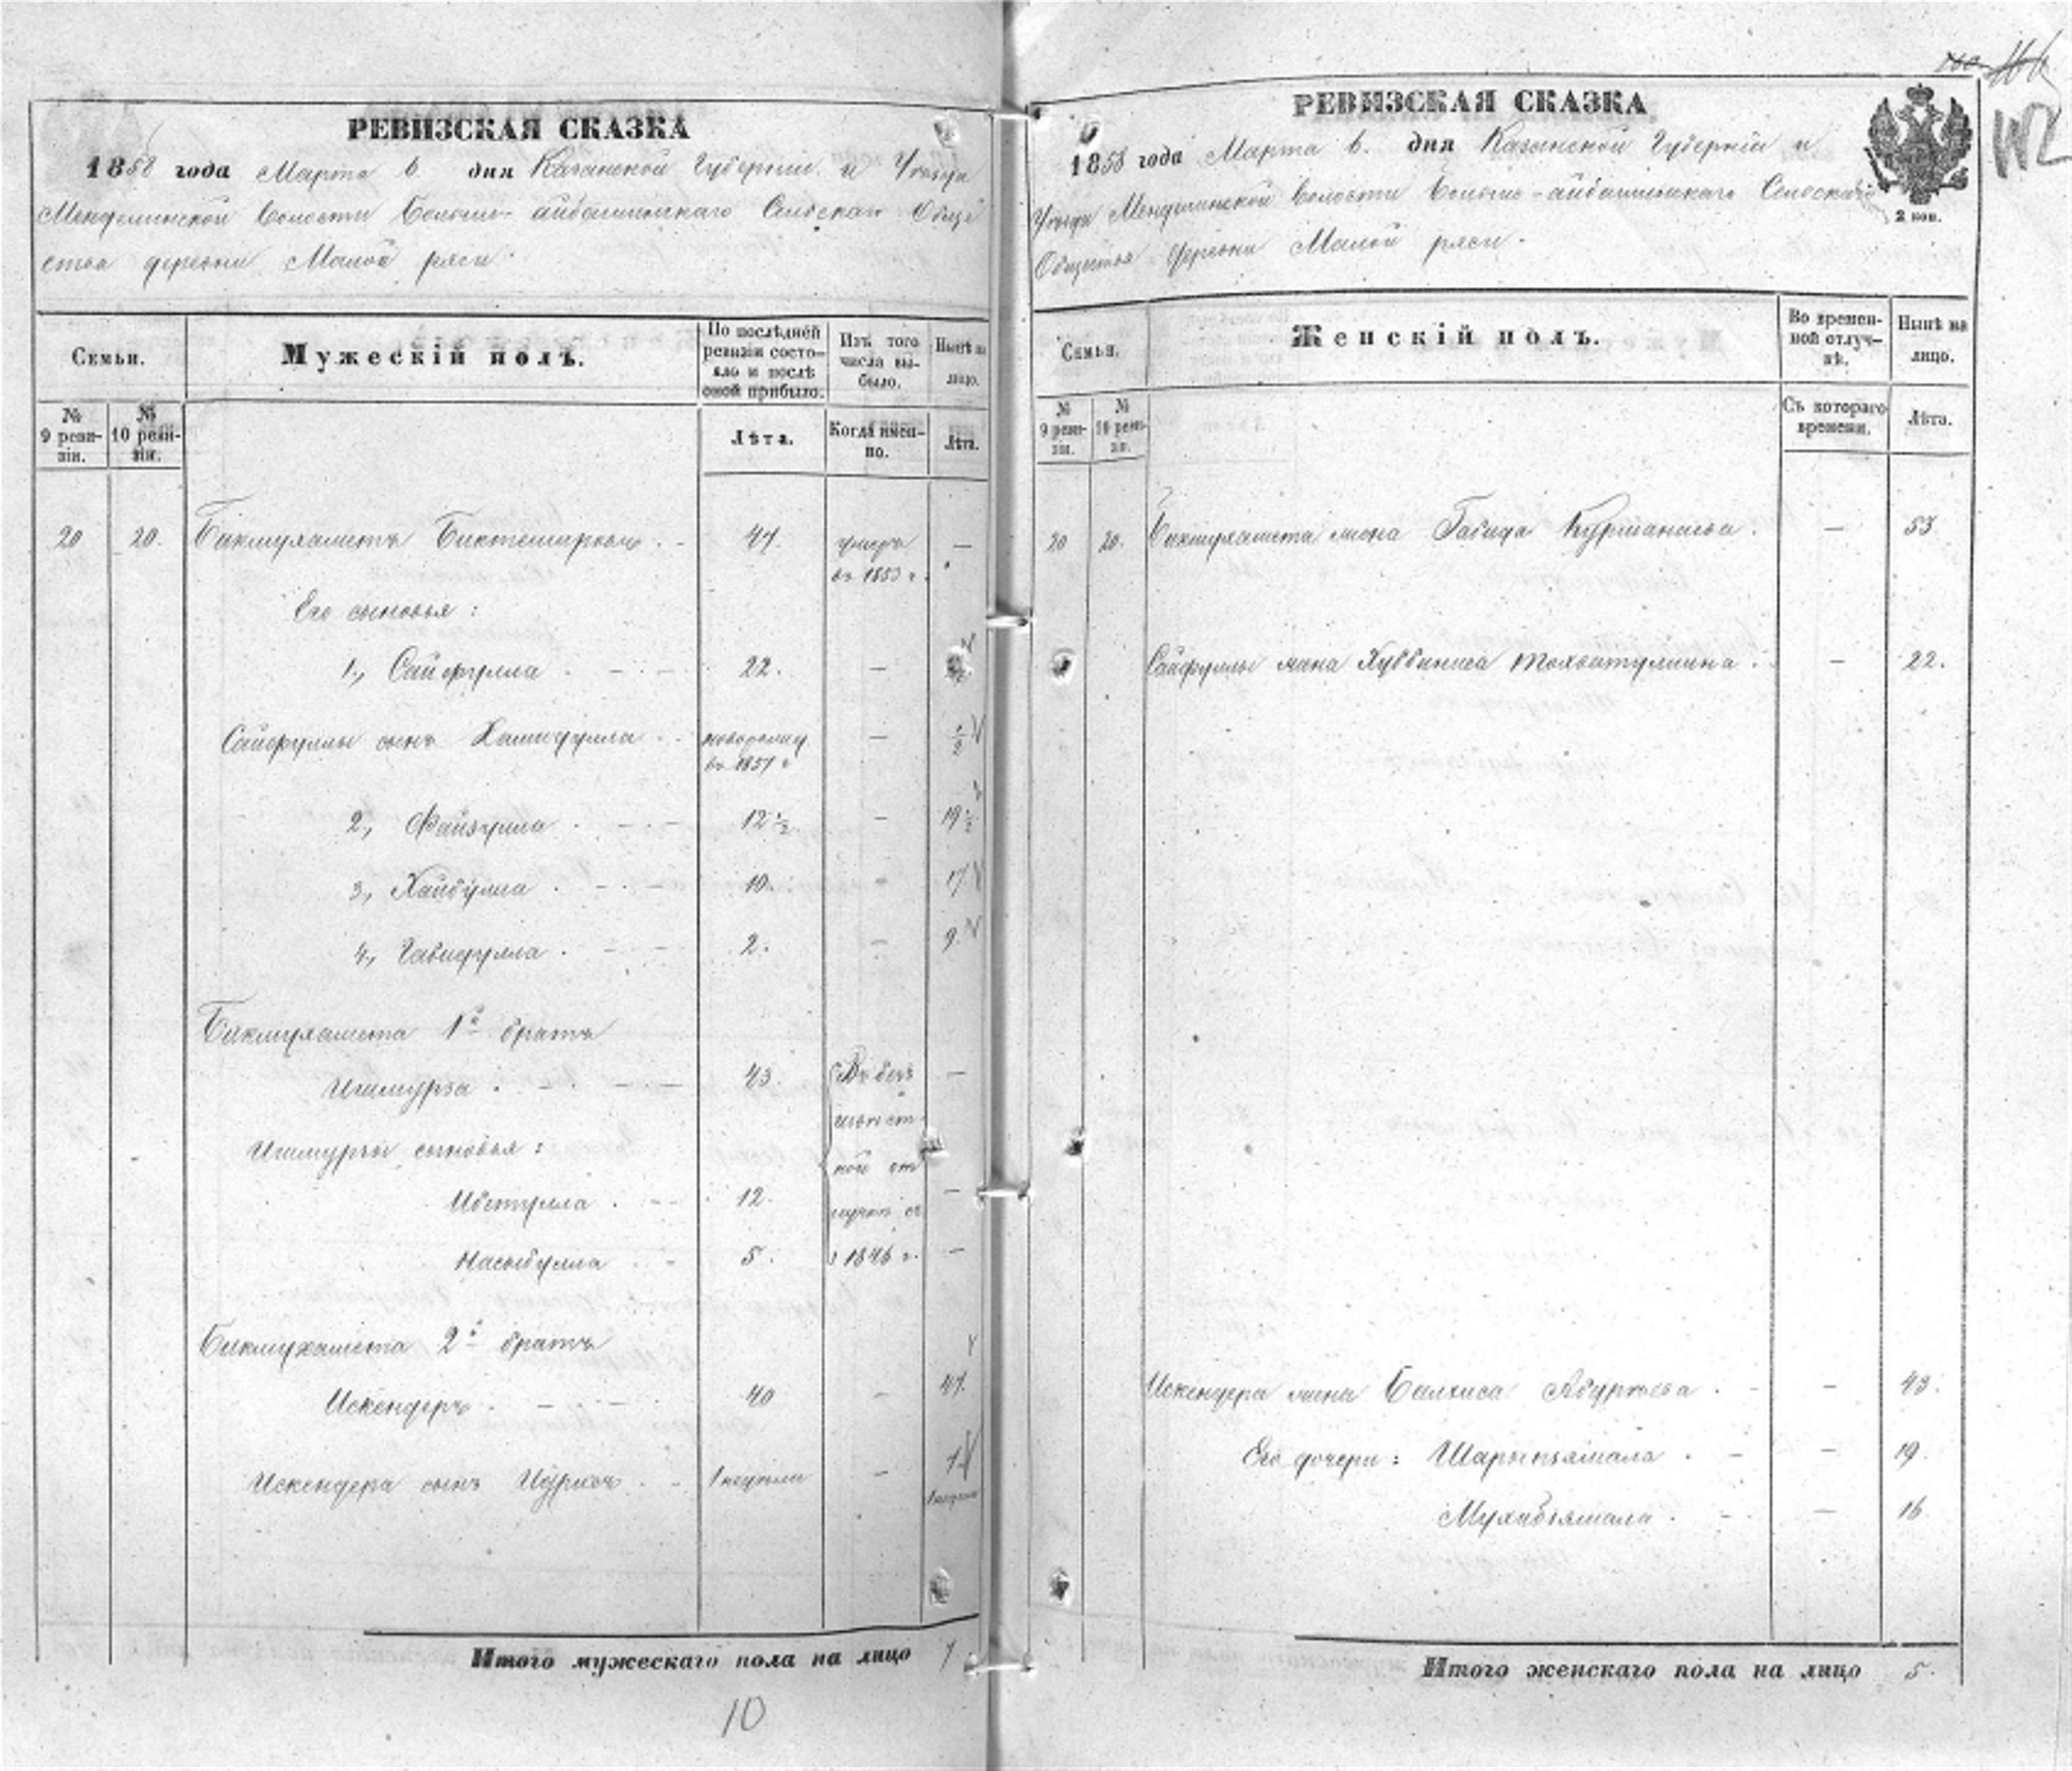 РЕВИЗСКАЯ СКАЗКА
1858 года Марта 6. дня Казанской Губернии и Уезда
Менделинской волости Больше-айбашинскаго Сельскаго Обще
ства деревни Малой ряси.
Семьи.
Мужескій полъ.
По послѣдней ревизіи состояло и послѣ оной прибыло.
Изъ того числа выбыло.
Нынѣ на лицо.
№ 9 ревизіи.
№ 10 ревизіи.
Лѣта.
Когда именно.
Лѣта.
20 20. Бикмухаметъ Биктемировъ 47. умеръ въ 1853 г. —
Его сыновья:
1, Сайфулла 22. —
Сайфуллы сынъ Хамидулла новорожд въ 1857 г —  ½
2, Файзулла 12½ — 19½
3, Хайбулла 10. - 17
4, Габидулла 2. — 9.
Бикмухамета 1й братъ
Ишмурза 43. Въ безъ —
извѣст
Ишмурзы сыновья:
ной от
Ибетулла 12. лучкѣ съ —
Насыбулла 5. 1846 г. —
Бикмухамета 2й братъ
Искендеръ 40 - 47.
Искендера сынъ Идрисъ 1 недѣли — 7
Итого мужескаго пола на лицо 7.
10
166
112
РЕВИЗСКАЯ СКАЗКА
1858 года Марта 6. дня Казанской Губерніи и
Уезда Менделинской волости Больше-айбашинскаго Сельскаго
Общества деревни Малой ряси.
2 коп.
Семьи.
Женскій полъ.
Во временной отлучкѣ.
Нынѣ на лицо.
№ 9 ревизіи.
№ 10 ревизіи.
Съ котораго времени.
Лѣта.
20 20. Бикмухамета жена Габида Курманаева. — 53
Сайфуллы жена Хуббиниса Тохватуллина. — 22.
Искендера жена Балхиса — 43.
Его дочери: Шарыпзямала — 19.
Мухибзямала — 16
Итого женскаго пола на лицо 5.